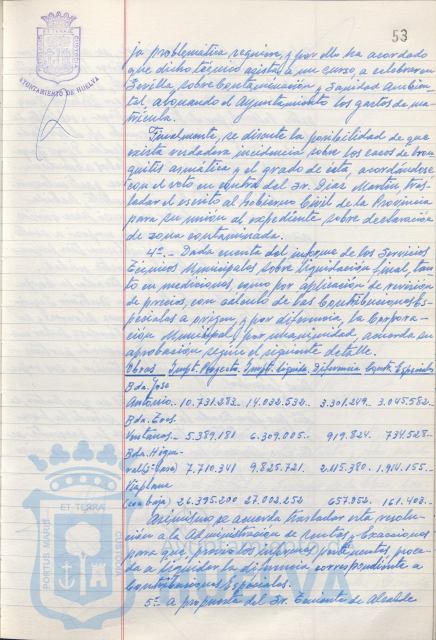 53
AYUNTAMIENTO DE HUELVA
ja problemática requiere, y por ello ha acordado
que dicho técnico asista a un curso a celebrar en
Sevilla, sobre Contaminación y Sanidad Ambien-
tal, abonando el Ayuntamiento los gastos de ma-
trícula.
Finalmente, se discute la posibilidad de que
exista verdadera incidencia sobre los casos de bron-
quitis asmática y el grado de ésta, acordándose
con el voto en contra del Sr. Díaz Martín, tras-
ladar el escrito al Gobierno Civil de la Provincia
para su unión al expediente sobre declaración
de zona contaminada.
4º.- Dada cuenta del informe de los Servicios
Técnicos Municipales sobre liquidación final, tan-
to en mediciones, como por aplicación de revisión
de precios, con cálculo de las Contribuciones Es-
peciales a origen, y por diferencia, la Corpora-
ción Municipal, por unanimidad, acuerda su
aprobación según el siguiente detalle.
Obras Impt. Proyecto Impt. Liquida. Diferencia Contr. Especiales
Bda. José
Antonio.- 10.731.283.- 14.032.532.- 3.301.249.- 3.045.582.-
Bda. Tres
Ventanas.- 5.389.181 6.309.005.- 919.824 734.528.-
Bda. Higue-
ral 7.710.341 9.825.721.- 2.115.380.- 1.914.155.-
Viaplana
26.395.200 27.002.252 657.952. 161.403.-
Asimismo se acuerda trasladar esta resolu-
ción a la Administración de Rentas y Exacciones
para que, previos informes pertinentes, proce-
da a liquidar la diferencia correspondiente a
Contribuciones Especiales.
5º.- A propuesta del Sr. Teniente de Alcalde
PORTUS MARIS ET TERRAE CUSTODIA
HUELVA